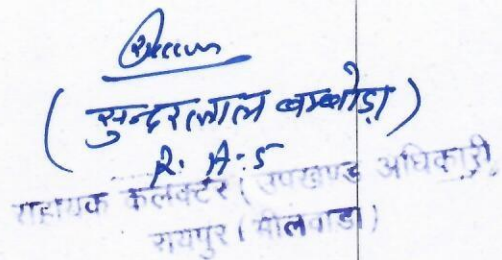 (सुन्दरलाल बम्बोड़ा)
R. A. S
सहायक कलक्टर (उपखण्ड अधिकारी
रायपुर (भीलवाडा)